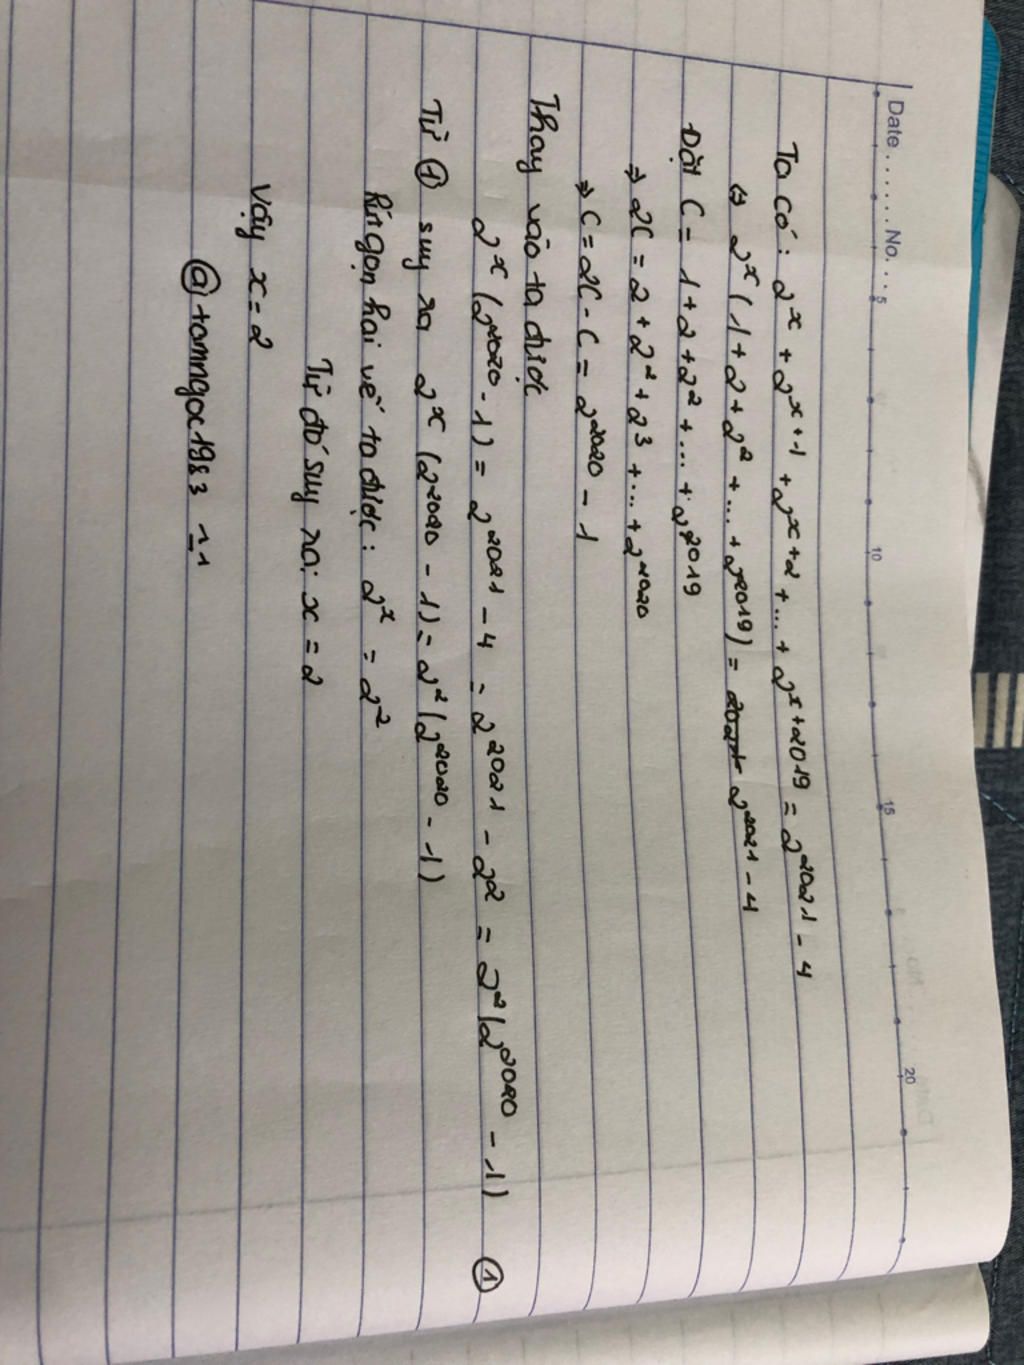 Date....... No. ...
5 10 15 20
Ta có: 2^x + 2^x+1 + 2^x+2 + ... + 2^x+2019 = 2^2021 - 4
⇔ 2^x (1 + 2 + 2^2 + ... + 2^2019) = 2^2021 - 4
Đặt C = 1 + 2 + 2^2 + ... + 2^2019
⇒ 2C = 2 + 2^2 + 2^3 + ... + 2^2020
⇒ C = 2C - C = 2^2020 - 1
Thay vào ta được
2^x (2^2020 - 1) = 2^2021 - 4 = 2^2021 - 2^2 = 2^2 (2^2020 - 1) ①
Từ ① suy ra 2^x (2^2020 - 1) = 2^2 (2^2020 - 1)
Rút gọn hai vế ta được: 2^x = 2^2
Từ đó suy ra: x = 2
Vậy x = 2